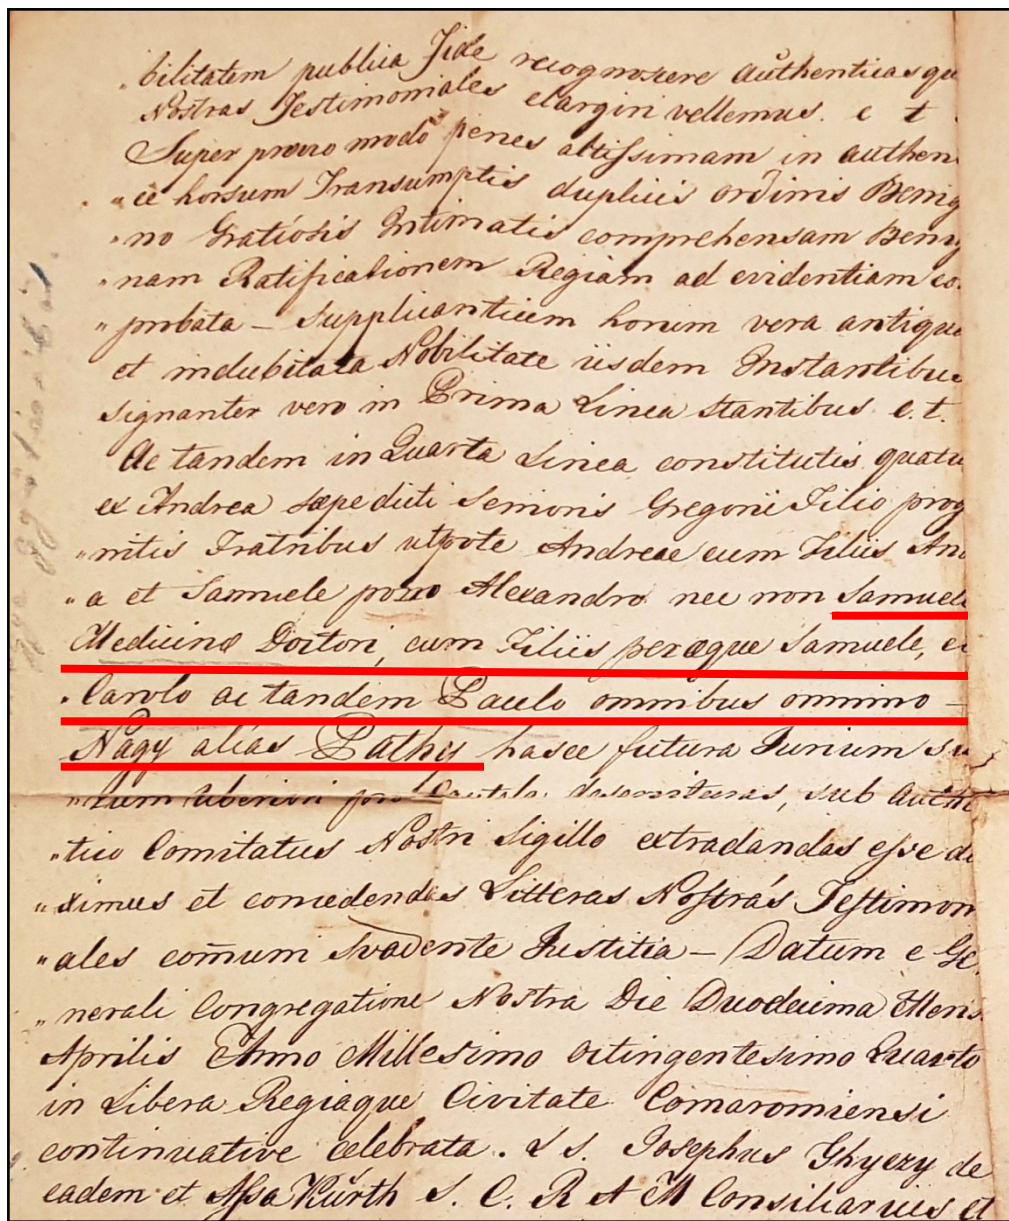 "bilitatem publica fide recognoscere authenticas qu
Nostras Testimoniales elargiri vellemus. e t
Super provo modo penes altissimam in authen
"ce horsum Transumptis duplicis ordinis Benig
"no Gratiosis Intimatis comprehensam Benig
"nam Ratificationem Regiam ad evidentiam co
"probata – Supplicantium horum vera antiqua
et indubitata Nobilitate iisdem Instantibus
signanter vero in Prima Linea stantibus e. t.
Ac tandem in Quarta Linea constitutis quatu
ex Andrea sæpedicti Senioris Gregorii Filio prog
"nitis Fratribus utpote Andreae cum Filiis An
"a et Samuele porro Alexandro nec non Samueli
Medicinæ Doctori, cum Filiis peræque Samuele, e
"Carolo ac tandem Paulo omnibus omnino –
Nagy alias Pathy hasce futura Jurium su
"rum uberiori pro Cautela deservituras, sub Authe
"tico Comitatus Nostri Sigillo extradandas esse du
"ximus et concedendas Litteras Nostras Testimon
"ales com̄uni svadente Justitia – Datum e Ge
"nerali Congregatione Nostra Die Duodecima Mens
Aprilis Anno Millesimo octingentesimo Quarto
in Libera Regiaque Civitate Comaromiensi
continuative celebrata. L. S. Josephus Ghyczy de
eadem et Assa Kürth S. C. R. A. M. Consiliarius et